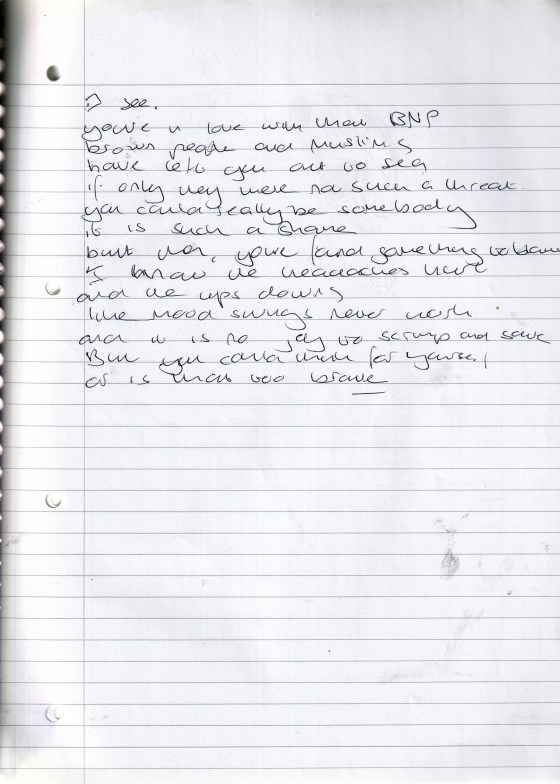 I see.
you're in love with that BNP
brown people and muslims
have left you out to sea
if only they were no such a threat.
you could really be somebody
it is such a shame
but then, you've found something to blame
I know the headaches hurt
and the ups downs
like mood swings never work
and it is no joy to scrimp and save
But you could think for yourself
or is that too brave